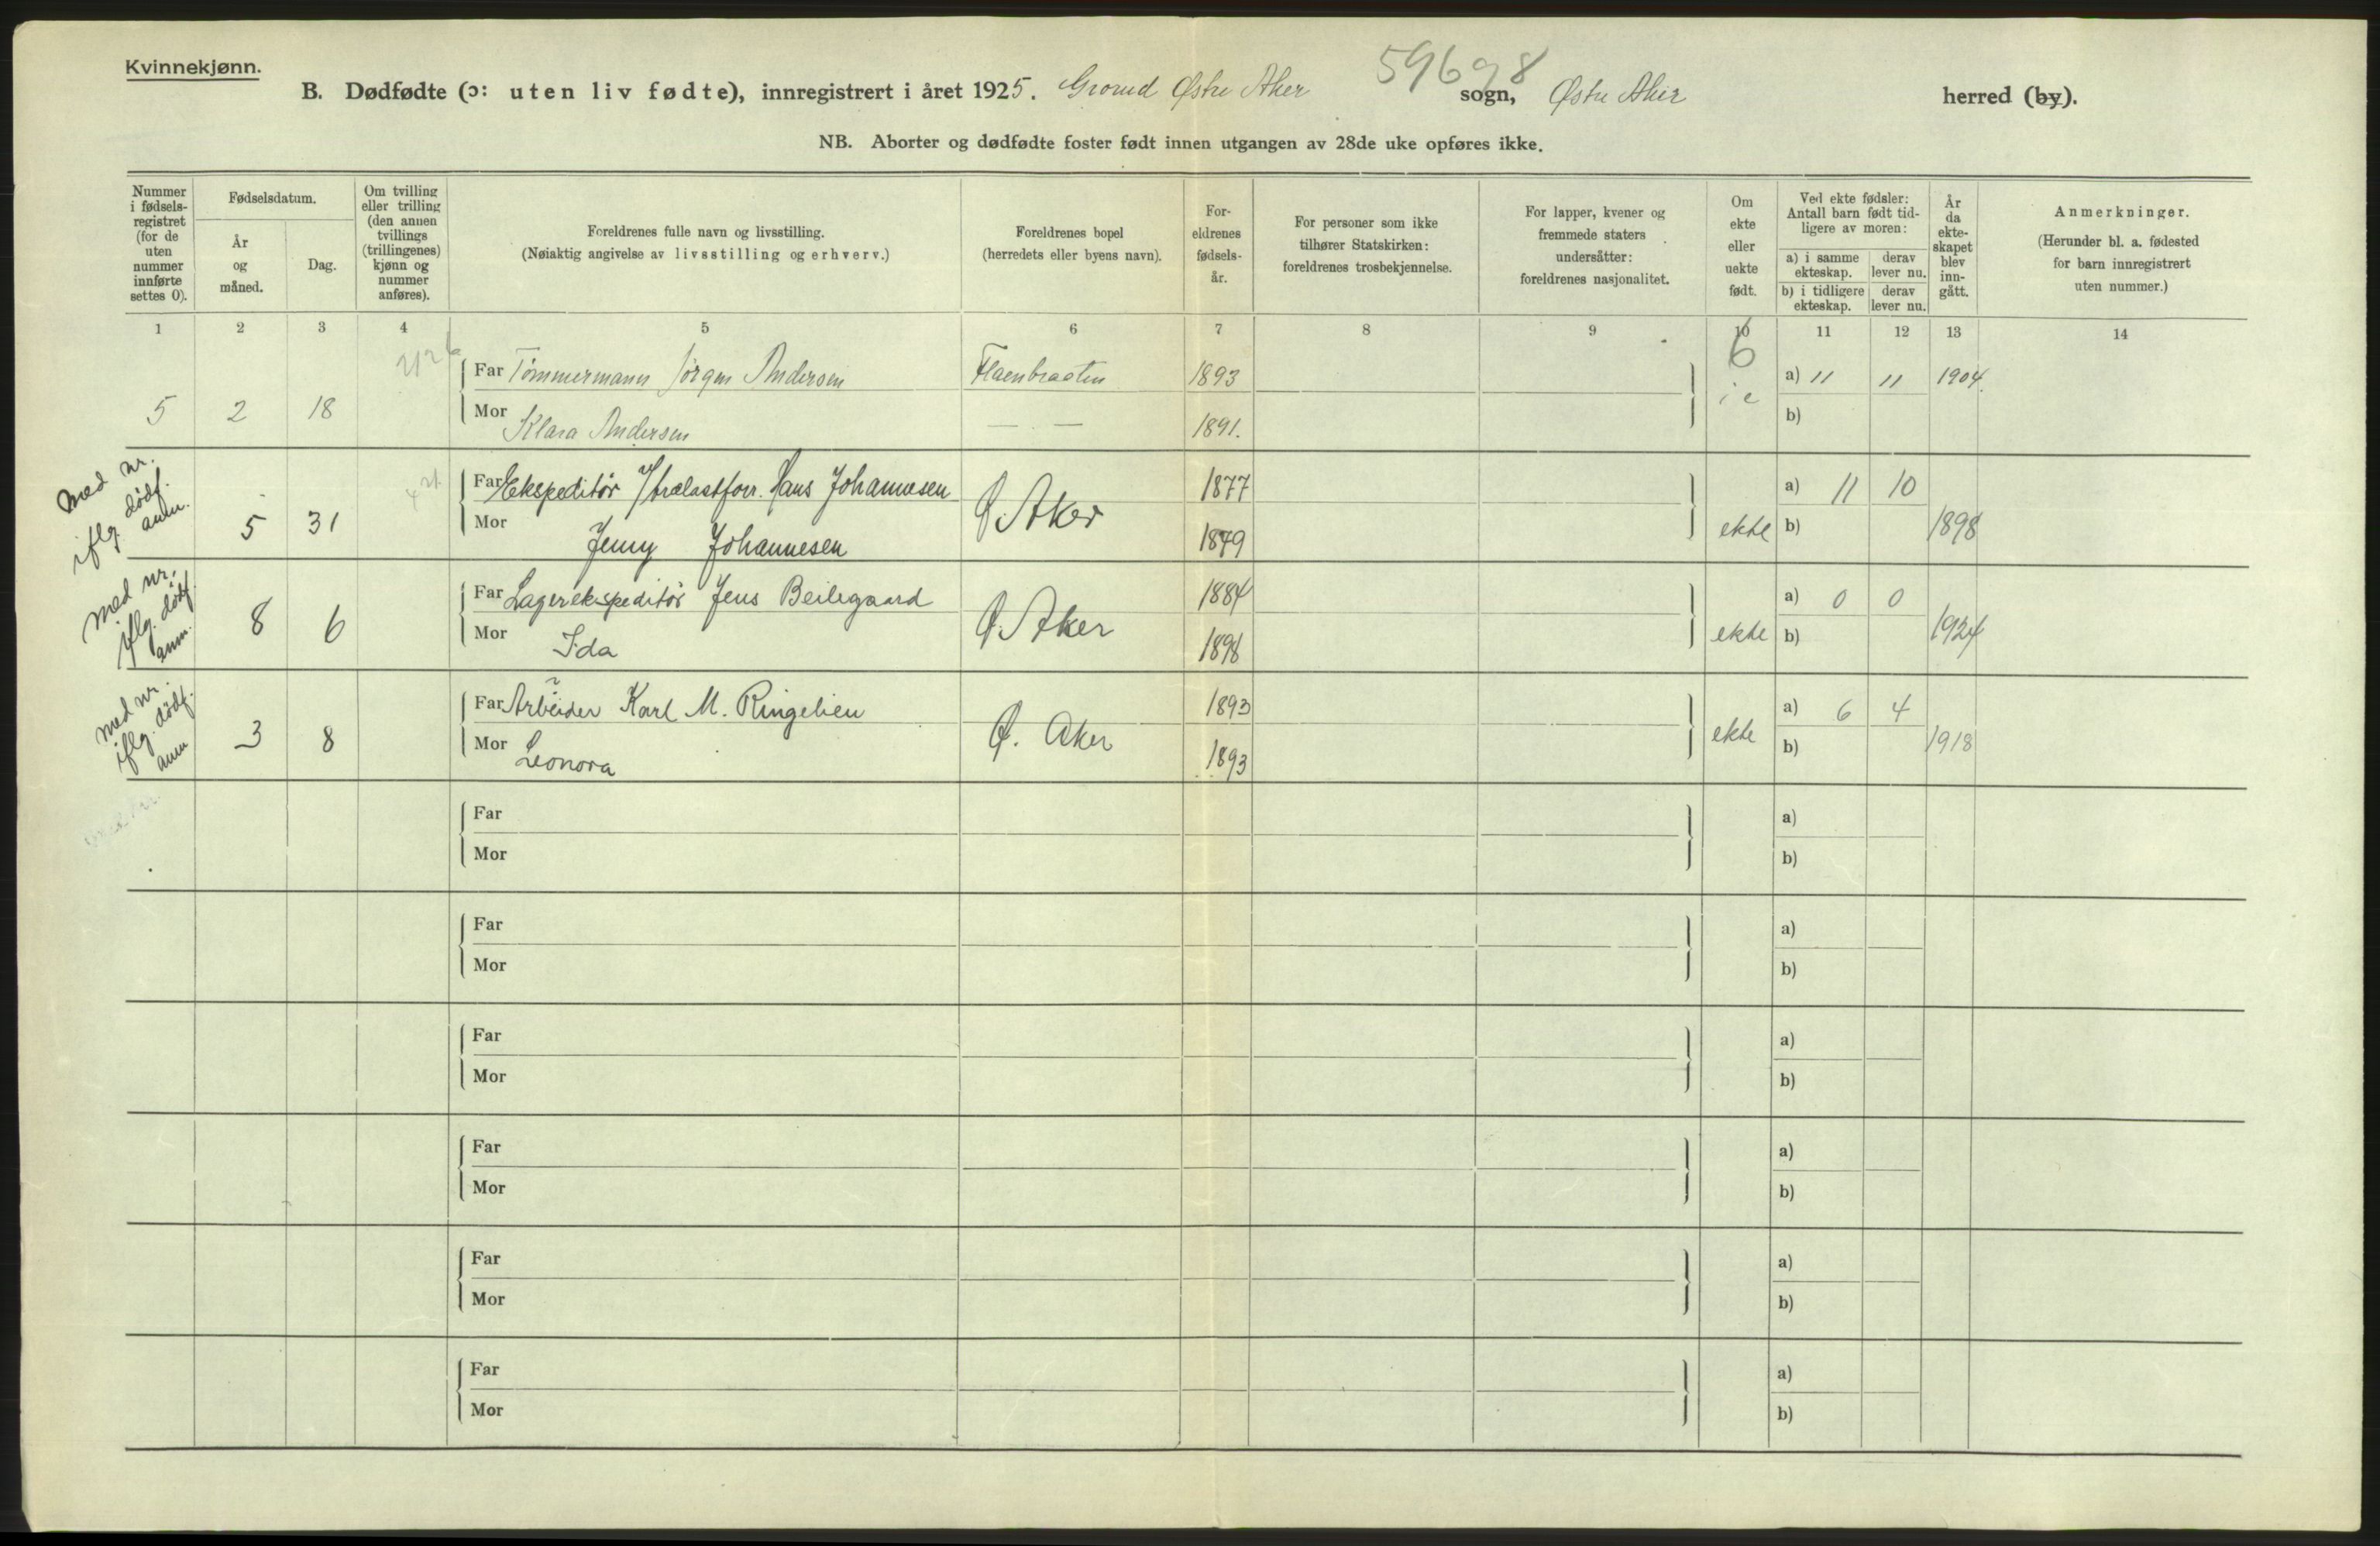 Kvinnekjønn.
59698
B. Dødfødte (ɔ: uten liv fødte), innregistrert i året 1925. Grorud Østre Aker sogn, Østre Aker herred (by).
NB. Aborter og dødfødte foster født innen utgangen av 28de uke opføres ikke.
Nummer i fødsels- registret (for de uten nummer innførte settes 0).
Fødselsdatum.
År og måned.
Dag.
Om tvilling eller trilling (den annen tvillings (trillingenes) kjønn og nummer anføres).
Foreldrenes fulle navn og livsstilling.
(Nøiaktig angivelse av livsstilling og erhverv.)
Foreldrenes bopel
(herredets eller byens navn).
For- eldrenes fødsels- år.
For personer som ikke tilhører Statskirken: foreldrenes trosbekjennelse.
For lapper, kvener og fremmede staters undersåtter: foreldrenes nasjonalitet.
Om ekte eller uekte født.
Ved ekte fødsler: Antall barn født tid- ligere av moren:
a) i samme ekteskap. derav lever nu.
b) i tidligere ekteskap. derav lever nu.
År da ekte- skapet blev inn- gått.
Anmerkninger.
(Herunder bl. a. fødested for barn innregistrert uten nummer.)
1 2 3 4 5 6 7 8 9 10 11 12 13 14
6
Far Tömmermann Jörgen Andersen Flaenbraaten 1893 a) 11 11 1904
5 2 18 Mor Klara Andersen — — 1891. b)
Med nr. iflg. dödf. anm.
Far Ekspeditör Hans Johannesen 1877 a) 11 10
5 31 Mor Jenny Johannesen Ø. Aker 1879 ekte b) 1898
Med nr. iflg. dödf. anm.
Far Lagerekspeditör Jens Beilegaard 1884 a) 0 0
8 6 Mor Ida Ø. Aker 1898 ekte b) 1924
Med nr. iflg. dödf. anm
Far Arbeider Karl M. Ringelien 1893 a) 6 4
3 8 Mor Leonora Ø. Aker 1893 ekte b) 1918
Far a)
Mor b)
Far a)
Mor b)
Far a)
Mor b)
Far a)
Mor b)
Far a)
Mor b)
Far a)
Mor b)